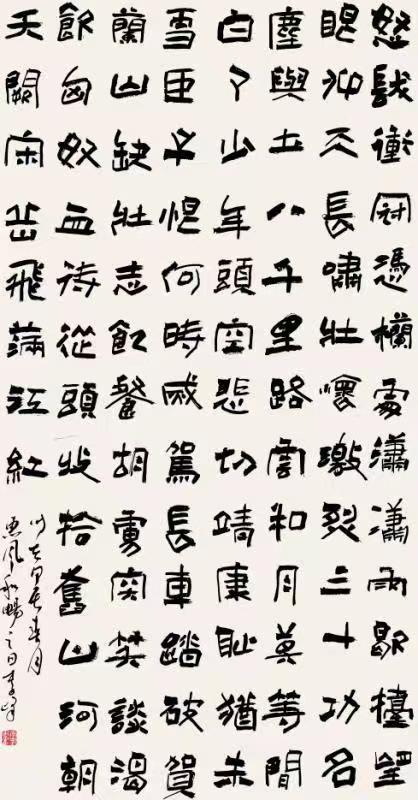 怒髮衝冠憑欄處瀟瀟雨歇擡望
眼仰天長嘯壯懷激烈三十功名
塵與土八千里路雲和月莫等閒
白了少年頭空悲切靖康恥猶未
雪臣子恨何時滅駕長車踏破賀
蘭山缺壯志飢餐胡虜肉笑談渴
飲匈奴血待從頭收拾舊山河朝
天闕宋岳飛滿江紅
甲辰春月
惠風和暢之日